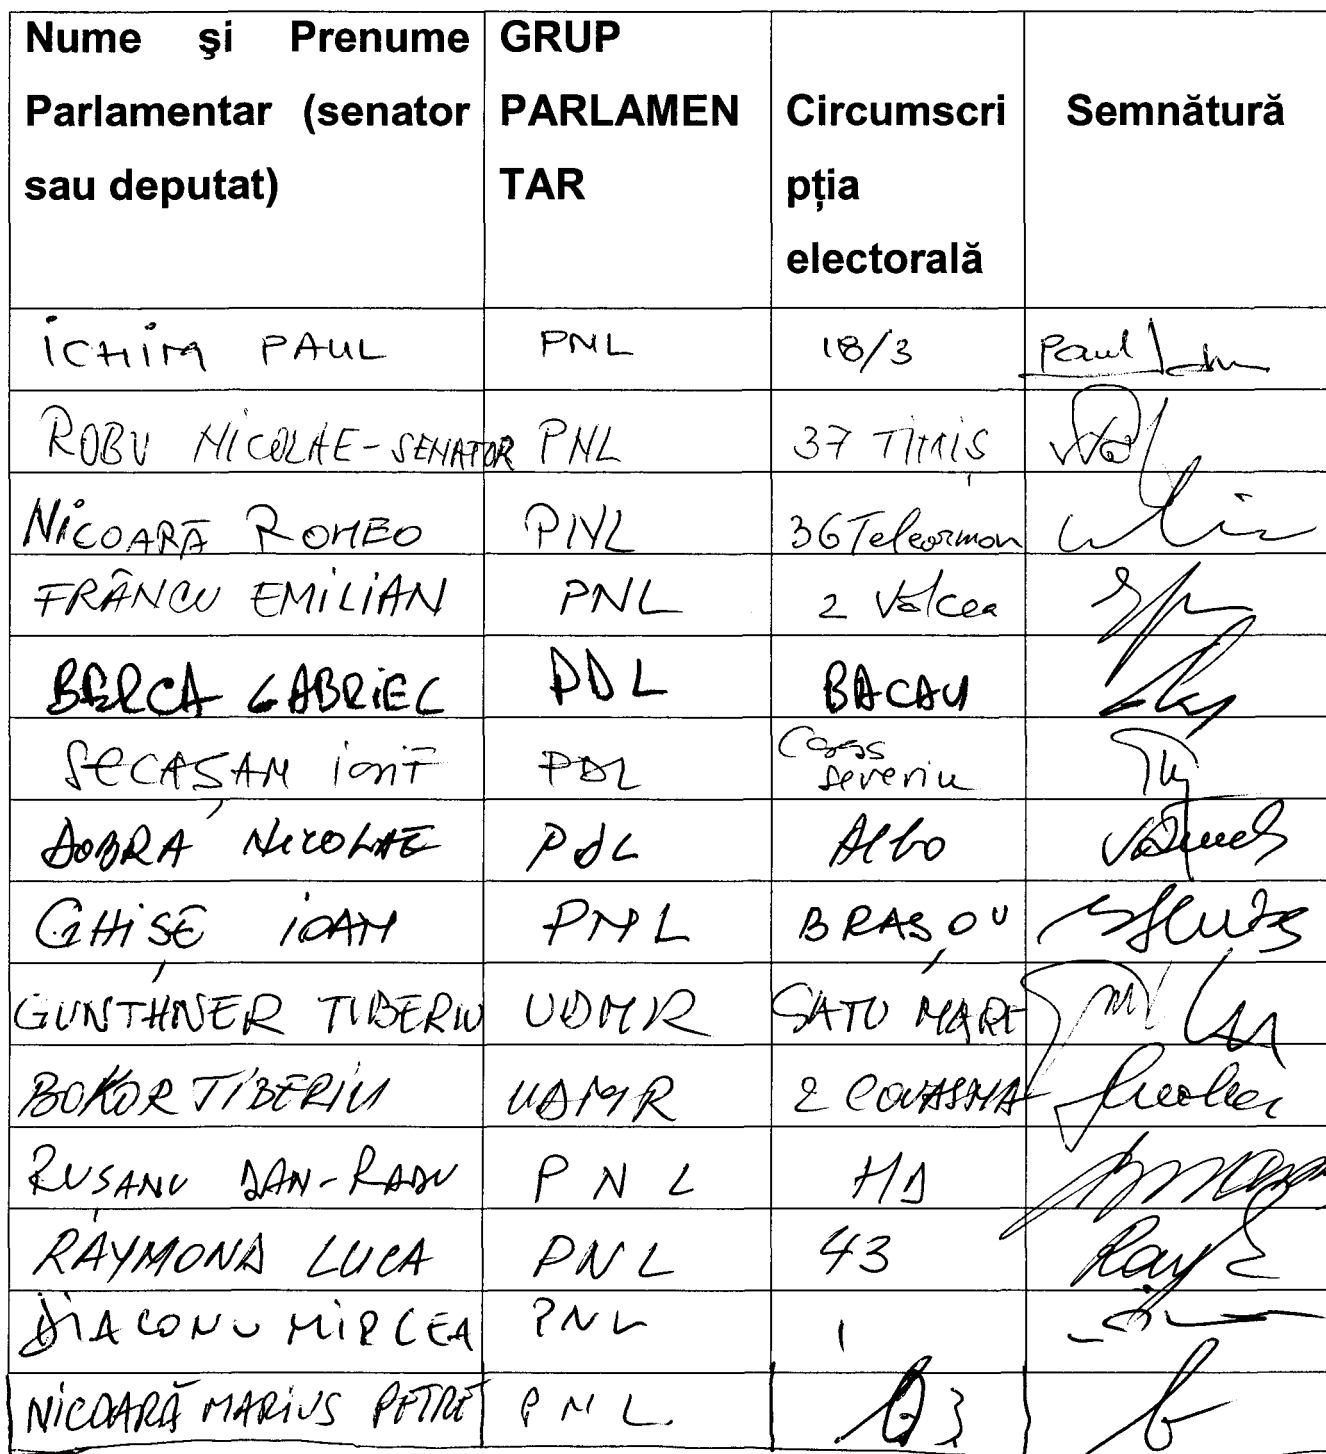 Nume și Prenume
Parlamentar (senator
sau deputat)
GRUP
PARLAMEN
TAR
Circumscri
pția
electorală
Semnătură
ICHIM PAUL PNL 18/3 Paul
ROBU NICOLAE-SENATOR PNL 37 TIMIȘ
NICOARĂ ROMEO PNL 36 Teleorman
FRÂNCU EMILIAN PNL 2 Vâlcea
BERCA GABRIEL PDL BACAU
SECĂȘAN PDL Caras
Severin
DOBRA NICOLAE PDL Alba
GHIȘE IOAN PNL BRAȘOV
GUNTHNER TIBERIU UDMR SATU MARE
BOKOR TIBERIU UDMR 2 COVASNA
RUSANU DAN-RADU PNL HD
RAYMOND LUCA PNL 43
DIACONU MIRCEA PNL 1
NICOARĂ MARIUS PETRE PNL